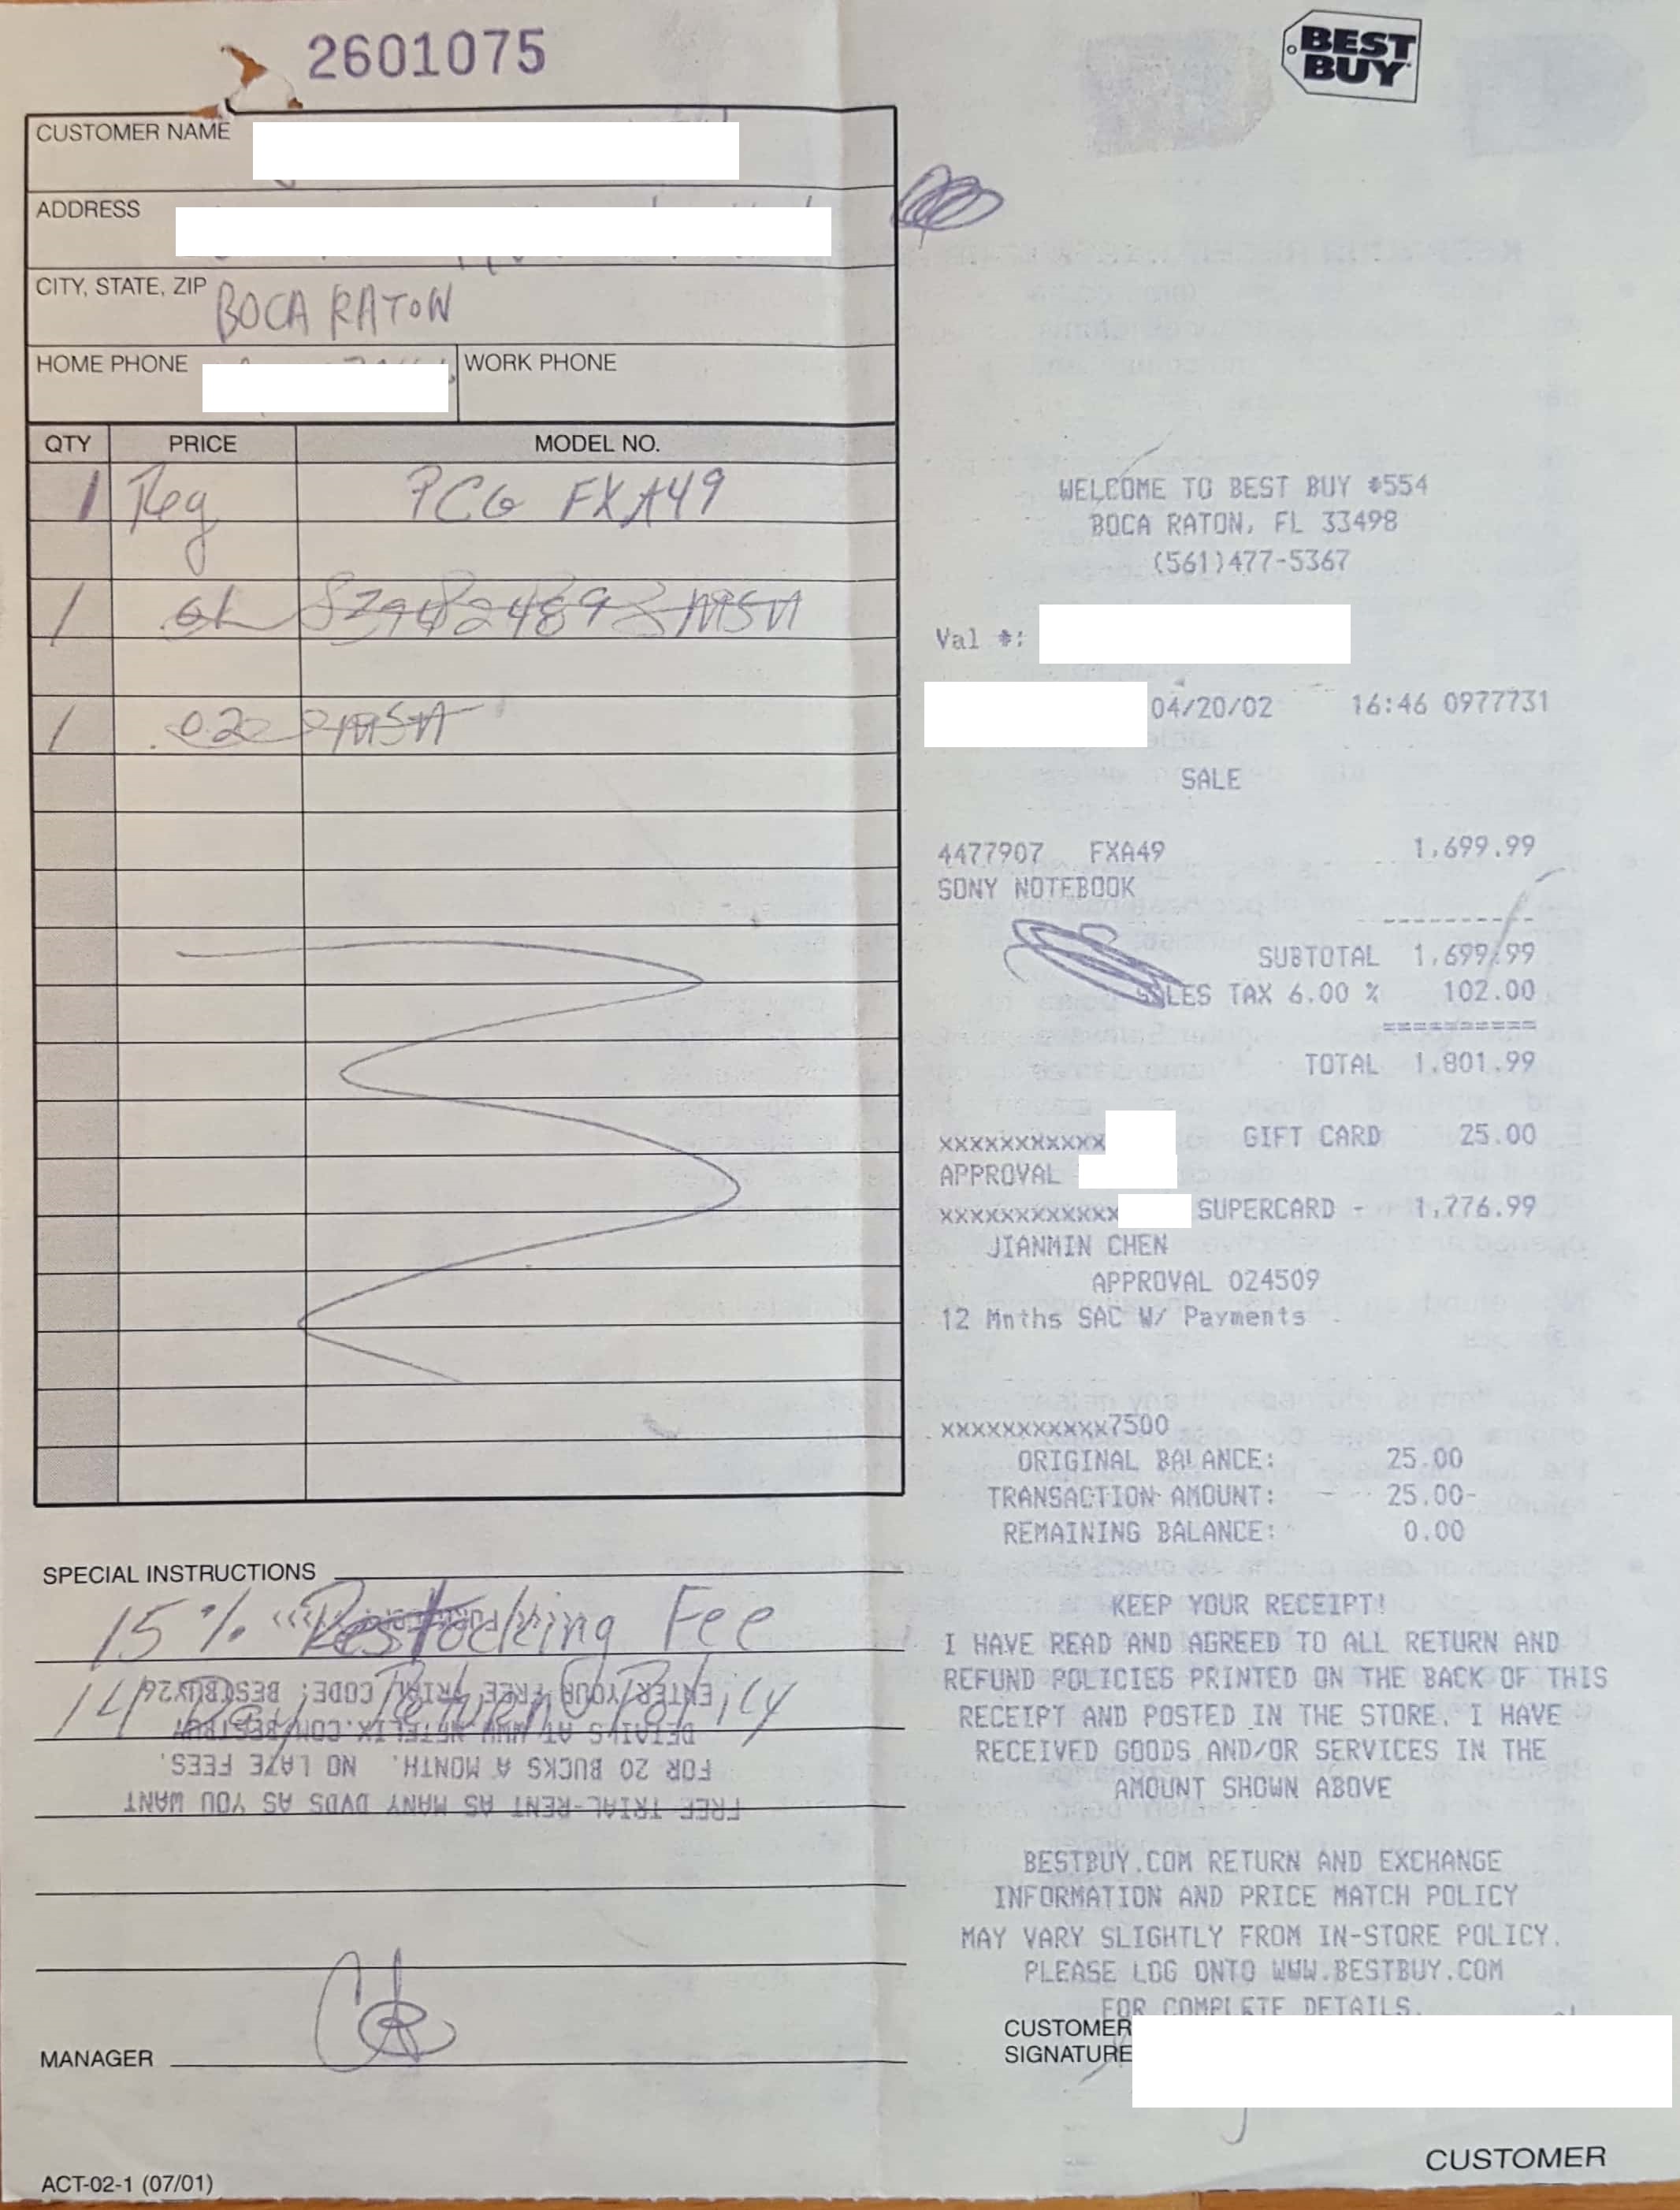 2601075
BEST
BUY
CUSTOMER NAME
ADDRESS
CITY, STATE, ZIP BOCA RATON
HOME PHONE WORK PHONE
QTY PRICE MODEL NO.
1 Reg PCG FXA49
1
1
SPECIAL INSTRUCTIONS
15% Restocking Fee
14 Day Return Policy
ENTER YOUR FREE TRIAL CODE: BESTBUY26
DETAILS AT WWW.NETFLIX.COM/BESTBUY
FOR 20 BUCKS A MONTH. NO LATE FEES.
FREE TRIAL-RENT AS MANY DVDS AS YOU WANT
MANAGER
ACT-02-1 (07/01)
WELCOME TO BEST BUY #554
BOCA RATON, FL 33498
(561)477-5367
Val #:
04/20/02 16:46 0977731
SALE
4477907 FXA49 1,699.99
SONY NOTEBOOK
SUBTOTAL 1,699.99
SALES TAX 6.00 % 102.00
==========
TOTAL 1,801.99
xxxxxxxxxxx GIFT CARD 25.00
APPROVAL
xxxxxxxxxxxx SUPERCARD - 1,776.99
JIANMIN CHEN
APPROVAL 024509
12 Mnths SAC W/ Payments
xxxxxxxxxxx7500
ORIGINAL BALANCE: 25.00
TRANSACTION AMOUNT: 25.00-
REMAINING BALANCE: 0.00
KEEP YOUR RECEIPT!
I HAVE READ AND AGREED TO ALL RETURN AND
REFUND POLICIES PRINTED ON THE BACK OF THIS
RECEIPT AND POSTED IN THE STORE. I HAVE
RECEIVED GOODS AND/OR SERVICES IN THE
AMOUNT SHOWN ABOVE
BESTBUY.COM RETURN AND EXCHANGE
INFORMATION AND PRICE MATCH POLICY
MAY VARY SLIGHTLY FROM IN-STORE POLICY.
PLEASE LOG ONTO WWW.BESTBUY.COM
FOR COMPLETE DETAILS.
CUSTOMER
SIGNATURE
CUSTOMER